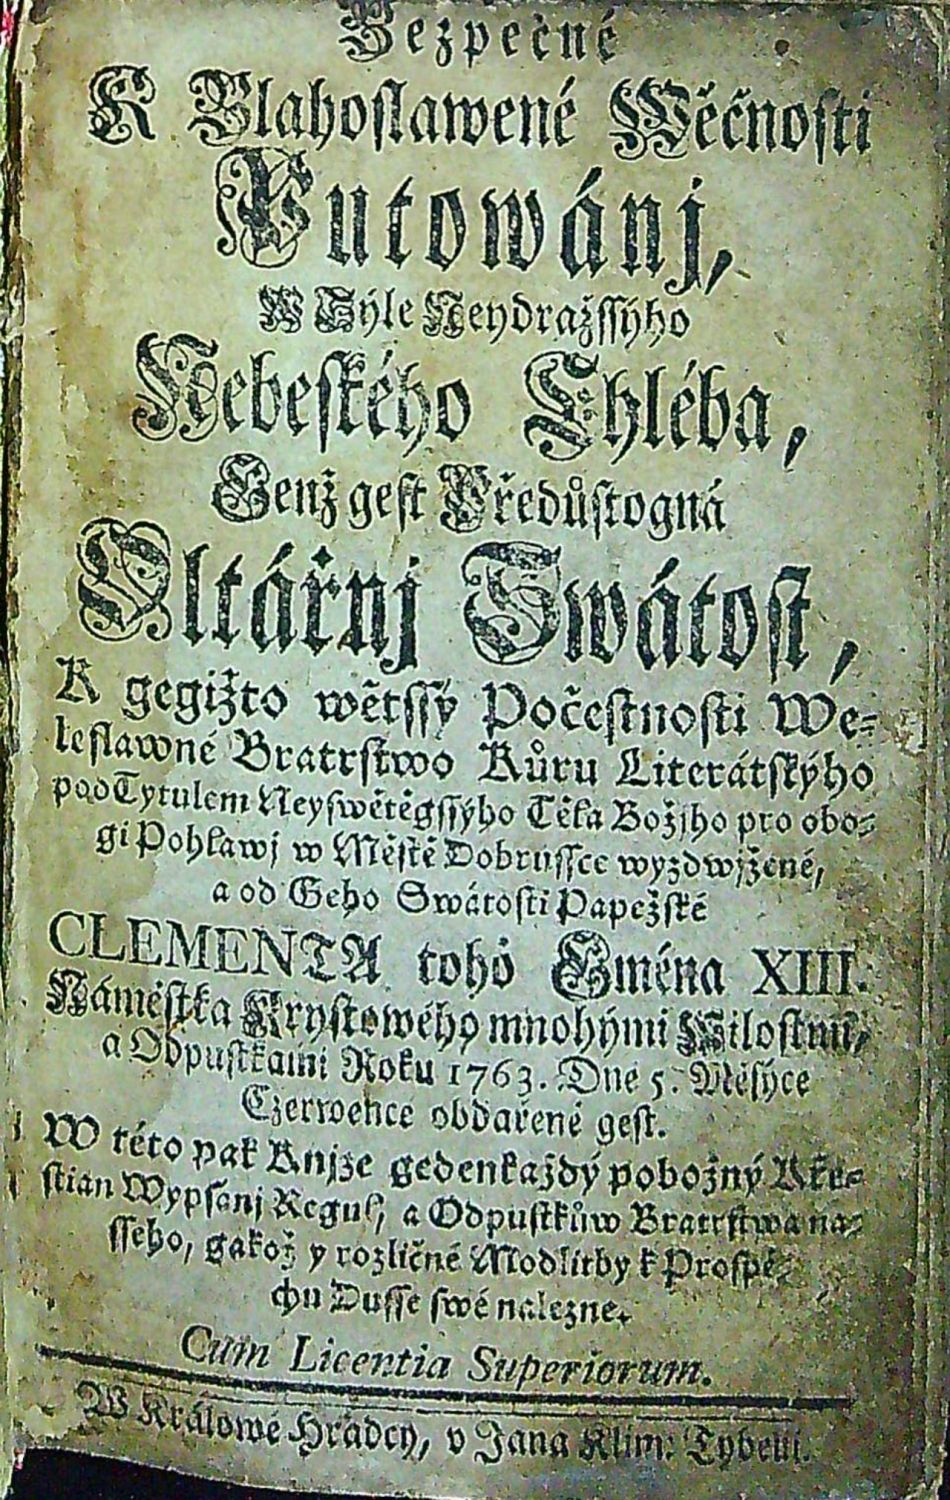 Bezpečné
K Blahoslawené Wěčnosti
Putowánj,
W Sýle Neydražssýho
Nebeského Chléba,
Genž gest Předůstogná
Oltářnj Swátost,
K gegižto wětssý Počestnosti We-
leslawné Bratrstwo Kůru Literátskýho
pod Tytulem Neyswětěgssýho Těla Božjho pro obo-
gi Pohlawj w Městě Dobrussce wyzdwjžené,
a od Geho Swátosti Papežské
CLEMENTA toho Gména XIII.
Náměstka Krystowého mnohými Milostmi,
a Odpustkami Roku 1763. Dne 5. Měsýce
Czerwence obdařené gest.
W této pak Knjze gedenkaždý pobožný Kře-
stian Wypsanj Regul, a Odpustkůw Bratrstwa na-
sseho, gakož y rozličné Modlitby k Prospě-
chu Dusse swé nalezne.
Cum Licentia Superiorum.
W Králowé Hradcy, v Jana Klim: Tybelli.